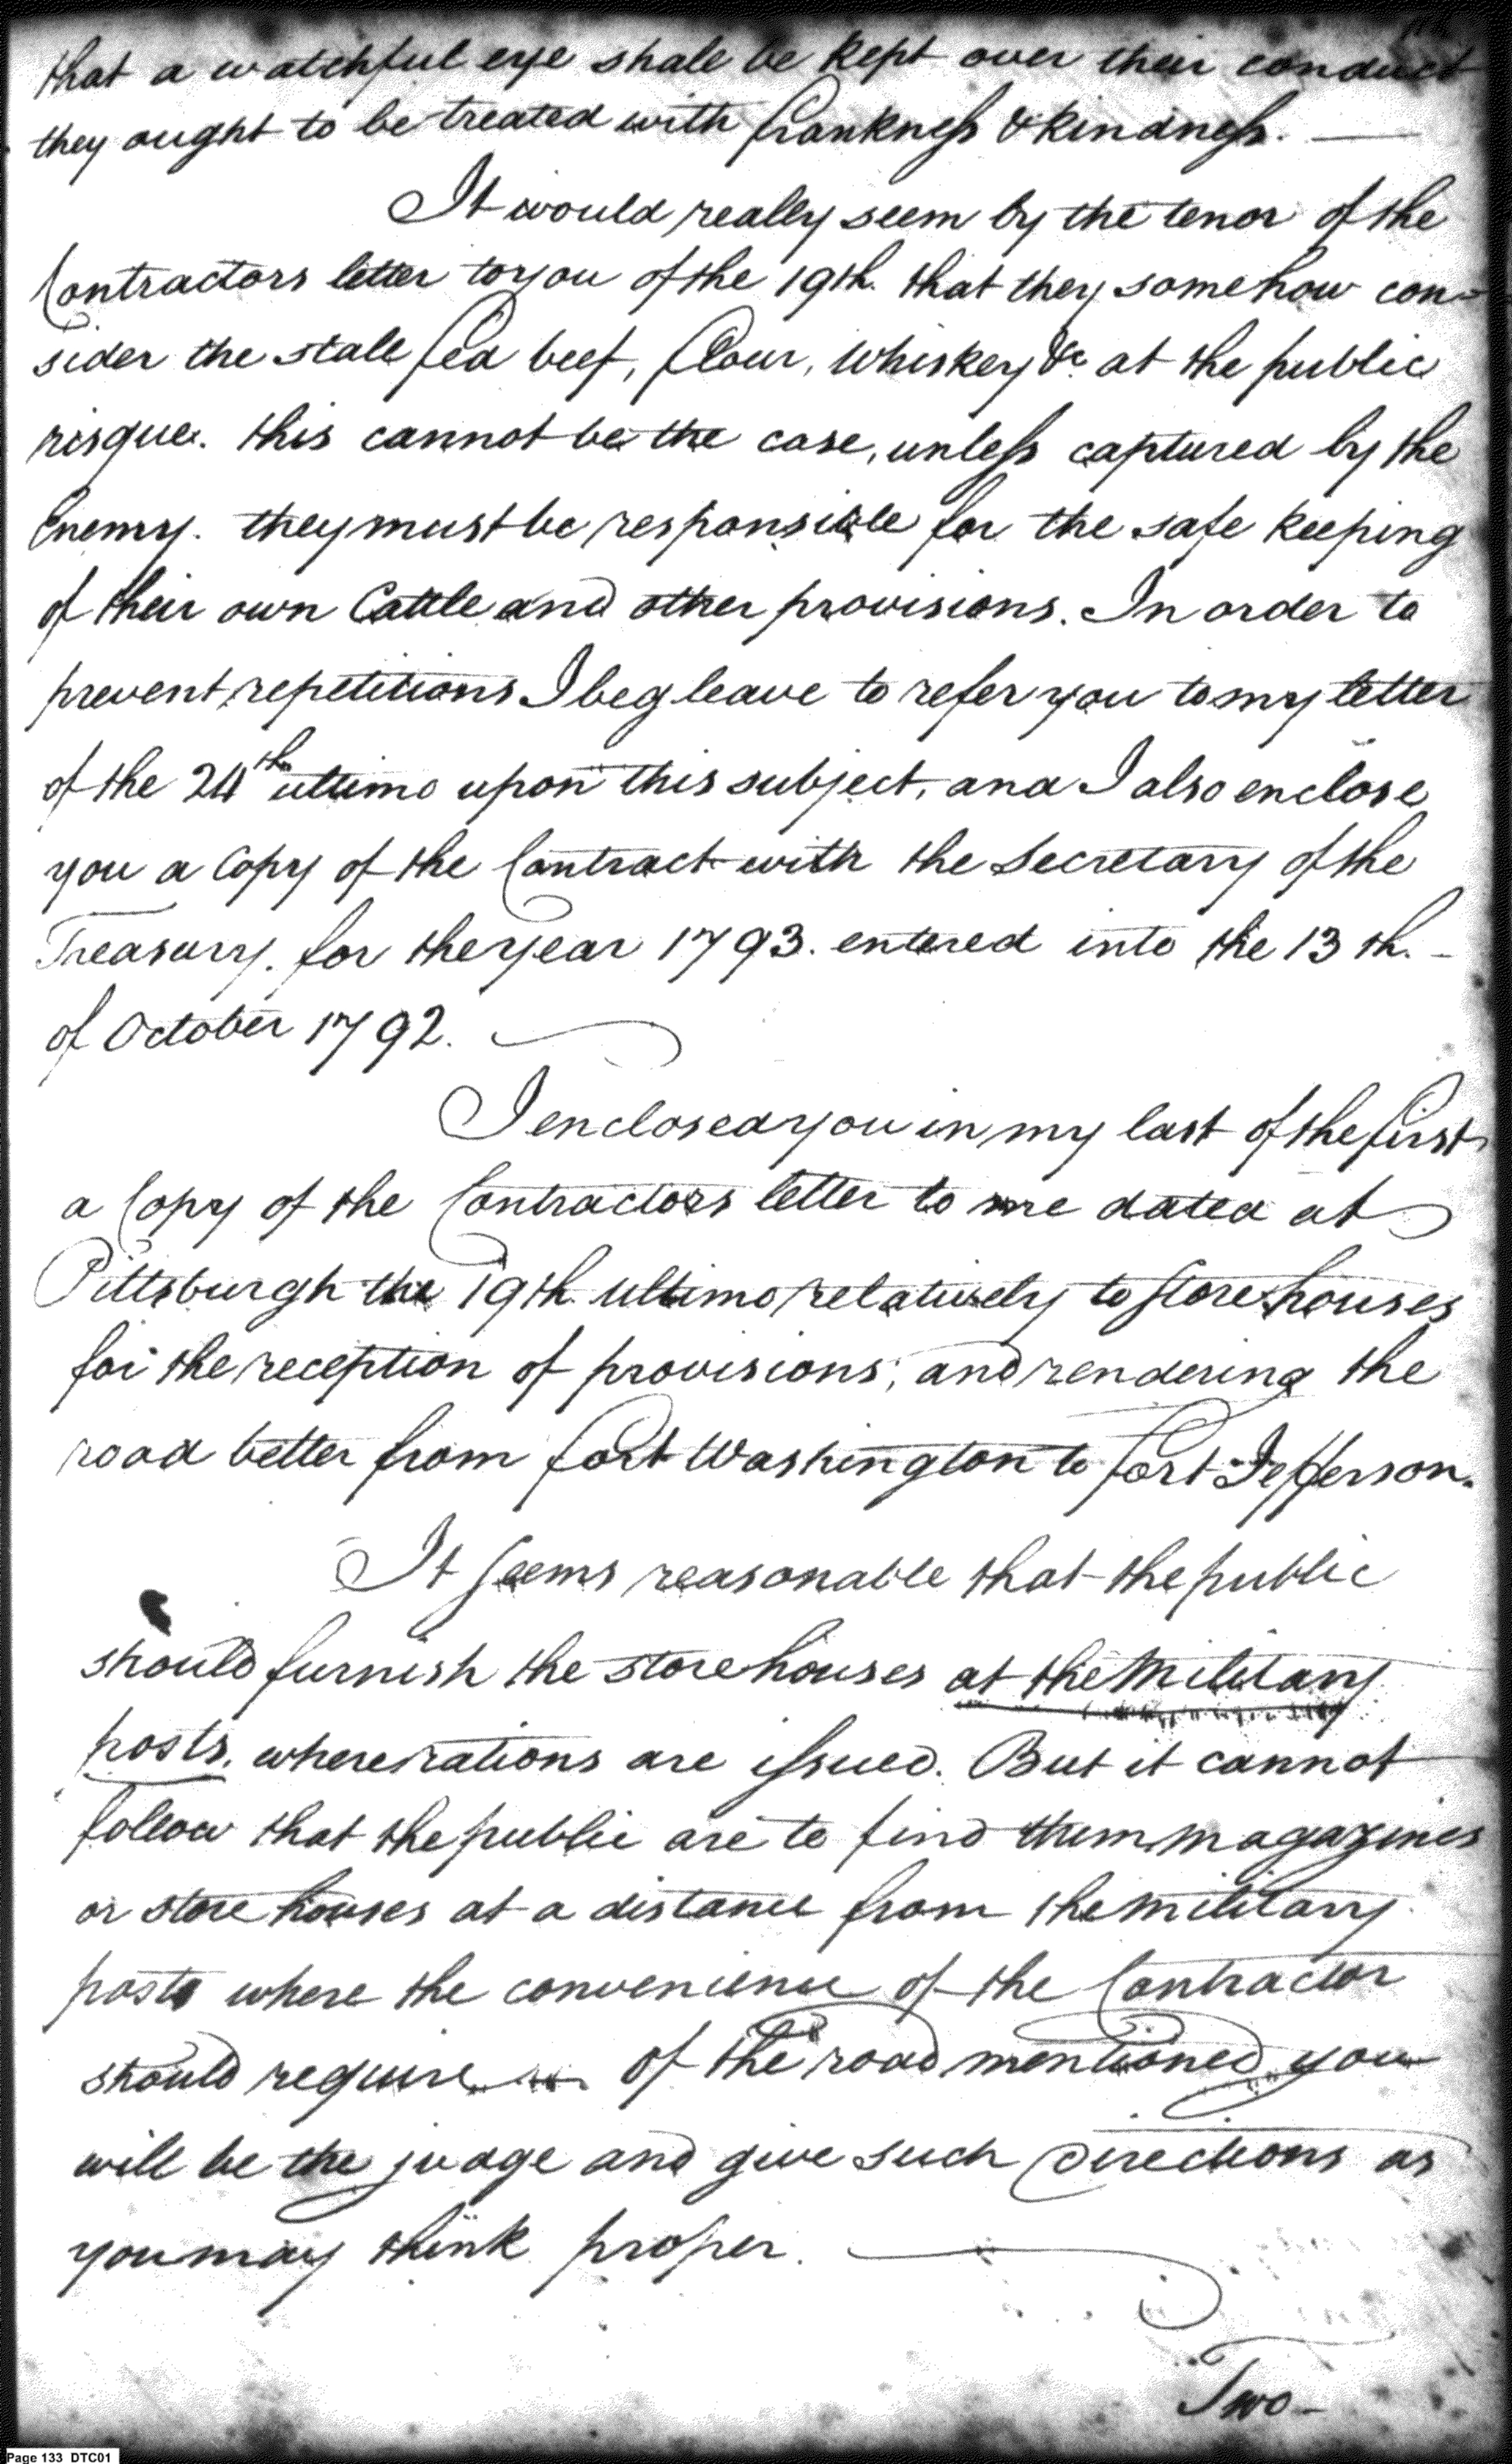 that a watchful eye shall be kept over their conduct
they ought to be treated with frankness & kindness. —
It would really seem by the tenor of the
Contractors letter to you of the 19th. that they somehow con-
sider the stall fed beef, flour, Whiskey &c. at the public
risque. this cannot be the case, unless captured by the
Enemy. they must be responsible for the safe keeping
of their own Cattle and other provisions. In order to
prevent repetitions I beg leave to refer you to my letter
of the 24th ultimo upon this subject, and I also enclose
you a Copy of the Contract with the Secretary of the
Treasury. for the year 1793. entered into the 13th. -
of October 1792. —
I enclosed you in my last of the first
a Copy of the Contractors letter to me dated at
Pittsburgh the 19th. ultimo relatively to Store houses
for the reception of provisions; and rendering the
road better from fort Washington to fort Jefferson.
It seems reasonable that the public
should furnish the store houses at the Military
posts. where rations are issued. But it cannot
follow that the public are to find them magazines
or store houses at a distance from the military
posts where the convenience of the Contractor
should require of the road mentioned you
will be the judge and give such directions as
you may think proper. —
Two -
Page 133 DTC01